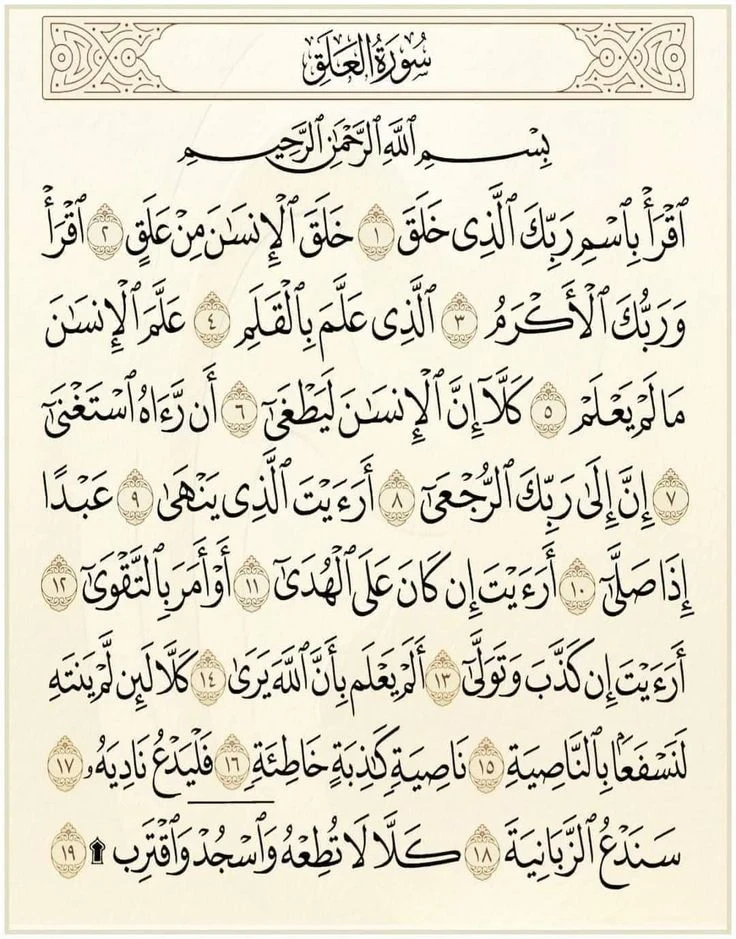 سُورَةُ الْعَلَقِ
بِسْمِ ٱللَّهِ ٱلرَّحْمَٰنِ ٱلرَّحِيمِ
ٱقْرَأْ بِٱسْمِ رَبِّكَ ٱلَّذِى خَلَقَ ١ خَلَقَ ٱلْإِنسَٰنَ مِنْ عَلَقٍ ٢ ٱقْرَأْ
وَرَبُّكَ ٱلْأَكْرَمُ ٣ ٱلَّذِى عَلَّمَ بِٱلْقَلَمِ ٤ عَلَّمَ ٱلْإِنسَٰنَ
مَا لَمْ يَعْلَمْ ٥ كَلَّآ إِنَّ ٱلْإِنسَٰنَ لَيَطْغَىٰٓ ٦ أَن رَّءَاهُ ٱسْتَغْنَىٰٓ
٧ إِنَّ إِلَىٰ رَبِّكَ ٱلرُّجْعَىٰٓ ٨ أَرَءَيْتَ ٱلَّذِى يَنْهَىٰ ٩ عَبْدًا
إِذَا صَلَّىٰٓ ١٠ أَرَءَيْتَ إِن كَانَ عَلَى ٱلْهُدَىٰٓ ١١ أَوْ أَمَرَ بِٱلتَّقْوَىٰٓ ١٢
أَرَءَيْتَ إِن كَذَّبَ وَتَوَلَّىٰٓ ١٣ أَلَمْ يَعْلَم بِأَنَّ ٱللَّهَ يَرَىٰ ١٤ كَلَّا لَئِن لَّمْ يَنتَهِ
لَنَسْفَعًۢا بِٱلنَّاصِيَةِ ١٥ نَاصِيَةٍ كَٰذِبَةٍ خَاطِئَةٍ ١٦ فَلْيَدْعُ نَادِيَهُۥ ١٧
سَنَدْعُ ٱلزَّبَانِيَةَ ١٨ كَلَّا لَا تُطِعْهُ وَٱسْجُدْ وَٱقْتَرِب ۩ ١٩